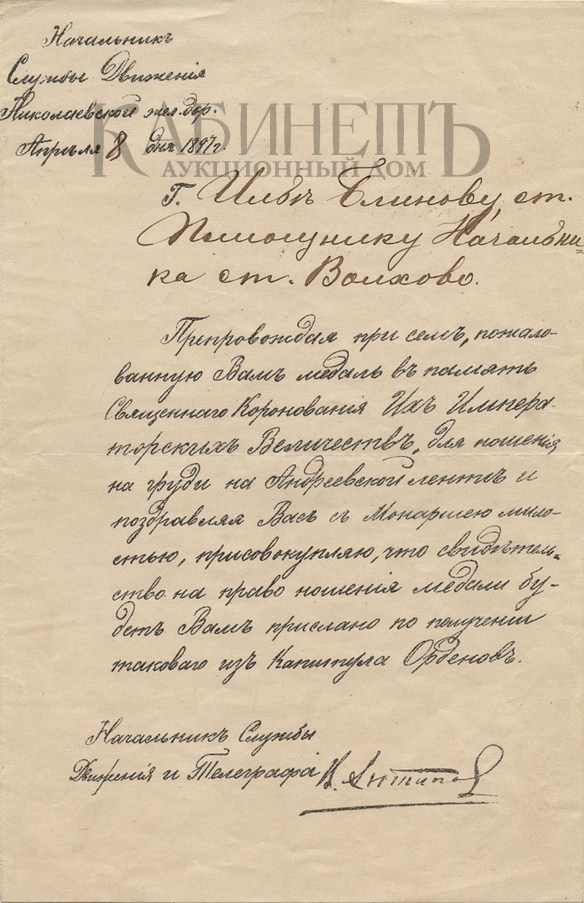 Начальникъ
Службы Движенія
Николаевской жел. дор.
Апрѣля 8 дня 1897 г.
КАБИНЕТЪ
АУКЦИОННЫЙ ДОМ
Г. Блинову, ст.
Помощнику Начальни-
ка ст. Волхово.
Препровождая при семъ, пожало-
ванную Вамъ медаль въ память
Священнаго Коронованія Ихъ Импера-
торскихъ Величествъ, для ношенія
на груди на Андреевской лентѣ и
поздравляя Васъ съ Монаршею мило-
стью, присовокупляю, что свидѣтель-
ство на право ношенія медали бу-
детъ Вамъ прислано по полученіи
таковаго изъ Капитула Орденовъ.
Начальникъ Службы
Движенія и Телеграфа Антипов